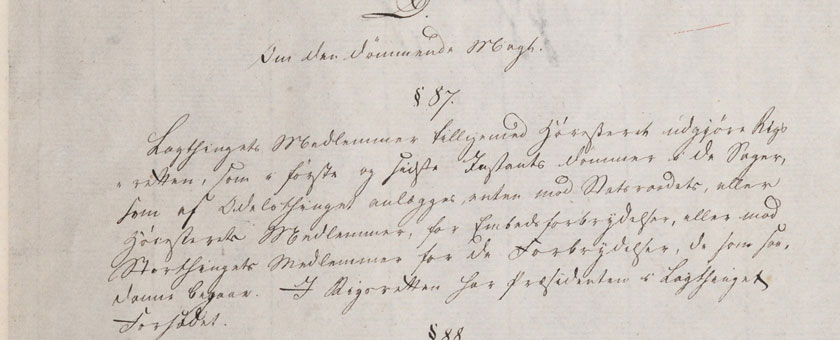 D.
Om den dømmende Magt.
§ 87.
Lagthingets Medlemmer tilligemed Høiesteret udgjøre Rigs
retten, som i første og sidste Instants dømmer i de Sager,
som af Odelsthinget anlægges, enten mod Statsraadets, eller
Høiesterets Medlemmer, for Embedsforbrydelser, eller mod
Storthingets Medlemmer for de Forbrydelser, de som saa-
danne begaae. I Rigsretten har Præsidenten i Lagthinget
Forsædet.
§ 88